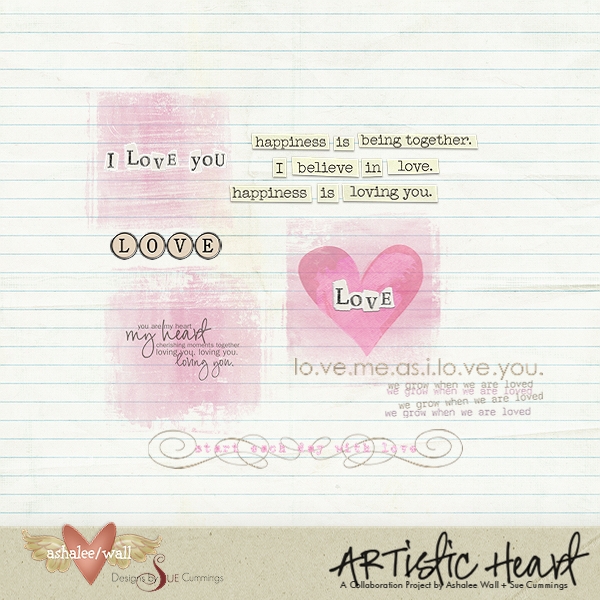 I LOVE YOU
happiness is being together.
I believe in love.
happiness is loving you.
LOVE
LOVE
you are my heart
my heart
cherishing moments together
loving you. loving you.
loving you.
lo.ve.me.as.i.lo.ve.you.
we grow when we are loved
we grow when we are loved
we grow when we are loved
we grow when we are loved
start each day with love
ashalee/wall
Designs by Sue Cummings
ARTistic Heart
A Collaboration Project by Ashalee Wall + Sue Cummings